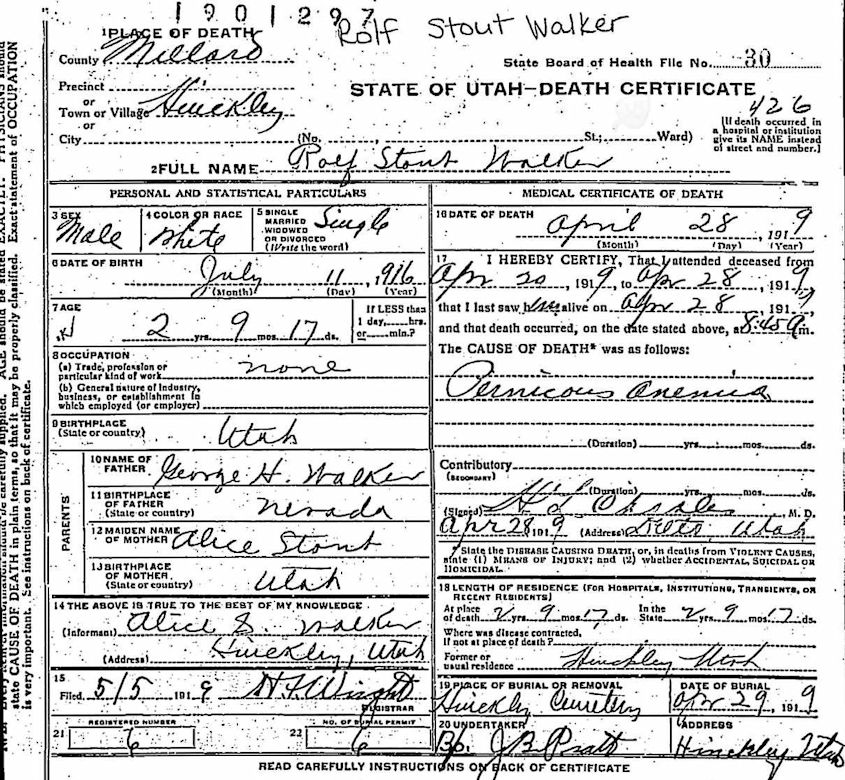 1901297
Rolf Stout Walker
1 PLACE OF DEATH
County Millard
State Board of Health File No. 30
Precinct
or
STATE OF UTAH—DEATH CERTIFICATE
Town or Village Hinckley
or
426
City (No. St.; Ward)
[If death occurred in
a hospital or institution
give its NAME instead
of street and number.]
2 FULL NAME Rolf Stout Walker
PERSONAL AND STATISTICAL PARTICULARS
3 SEX Male
4 COLOR OR RACE White
5 SINGLE
MARRIED
WIDOWED
OR DIVORCED
(Write the word) Single
6 DATE OF BIRTH July 11, 1916
(Month) (Day) (Year)
7 AGE
2 yrs. 9 mos. 17 ds.
If LESS than
1 day, hrs.
or min.?
8 OCCUPATION
(a) Trade, profession or
particular kind of work none
(b) General nature of industry,
business, or establishment in
which employed (or employer)
9 BIRTHPLACE
(State or country) Utah
PARENTS
10 NAME OF
FATHER George H. Walker
11 BIRTHPLACE
OF FATHER
(State or country) Nevada
12 MAIDEN NAME
OF MOTHER Alice Stout
13 BIRTHPLACE
OF MOTHER
(State or country) Utah
14 THE ABOVE IS TRUE TO THE BEST OF MY KNOWLEDGE
(Informant) Alice S. Walker
(Address) Hinckley, Utah
15
Filed 5/5 1919 H F Wright
REGISTRAR
REGISTERED NUMBER
21 6
NO. OF BURIAL PERMIT
22 6
MEDICAL CERTIFICATE OF DEATH
16 DATE OF DEATH April 28, 1919
(Month) (Day) (Year)
17 I HEREBY CERTIFY, That I attended deceased from
Apr 20, 1919, to Apr 28, 1919
that I last saw him alive on Apr 28, 1919,
and that death occurred, on the date stated above, at 8:45 a m.
The CAUSE OF DEATH* was as follows:
Pernicous Anemia
(Duration) yrs. mos. ds.
Contributory
(SECONDARY)
(Duration) yrs. mos. ds.
(Signed) M. D.
Apr 28 1919 (Address) Utah
*State the DISEASE CAUSING DEATH, or, in deaths from VIOLENT CAUSES,
state (1) MEANS OF INJURY; and (2) whether ACCIDENTAL, SUICIDAL OR
HOMICIDAL.
18 LENGTH OF RESIDENCE (FOR HOSPITALS, INSTITUTIONS, TRANSIENTS, OR
RECENT RESIDENTS)
At place
of death 2 yrs. 9 mos. 17 ds. In the
State 2 yrs. 9 mos. 17 ds.
Where was disease contracted,
if not at place of death?
Former or
usual residence Hinckley Utah
19 PLACE OF BURIAL OR REMOVAL
Hinckley Cemetery
DATE OF BURIAL
Apr 29, 1919
20 UNDERTAKER
Bp. J B Pratt
ADDRESS
Hinckley Utah
READ CAREFULLY INSTRUCTIONS ON BACK OF CERTIFICATE
state CAUSE OF DEATH in plain terms, so that it may be properly classified. Exact statement of OCCUPATION
is very important. See instructions on back of certificate.